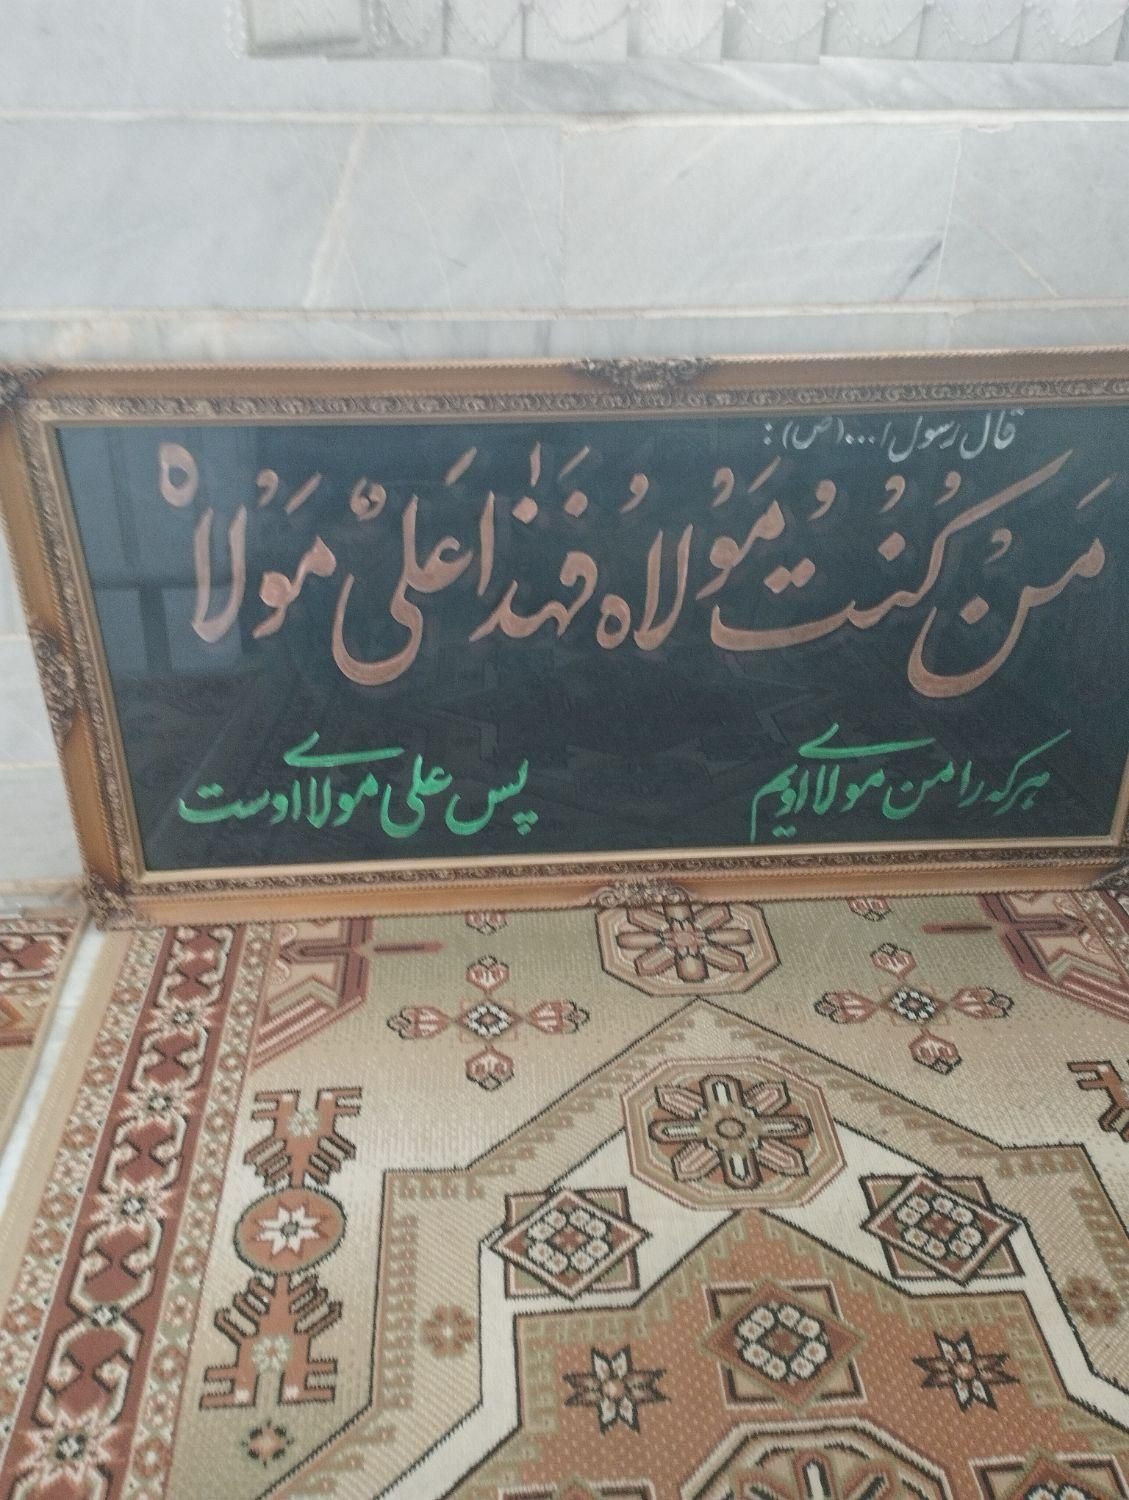 قال رسول ا...(ص):
مَنْ کُنْتُ مَوْلاهُ فَهٰذا عَلیٌّ مَوْلاهْ
هرکه را من مولای اویم
پس علی مولای اوست